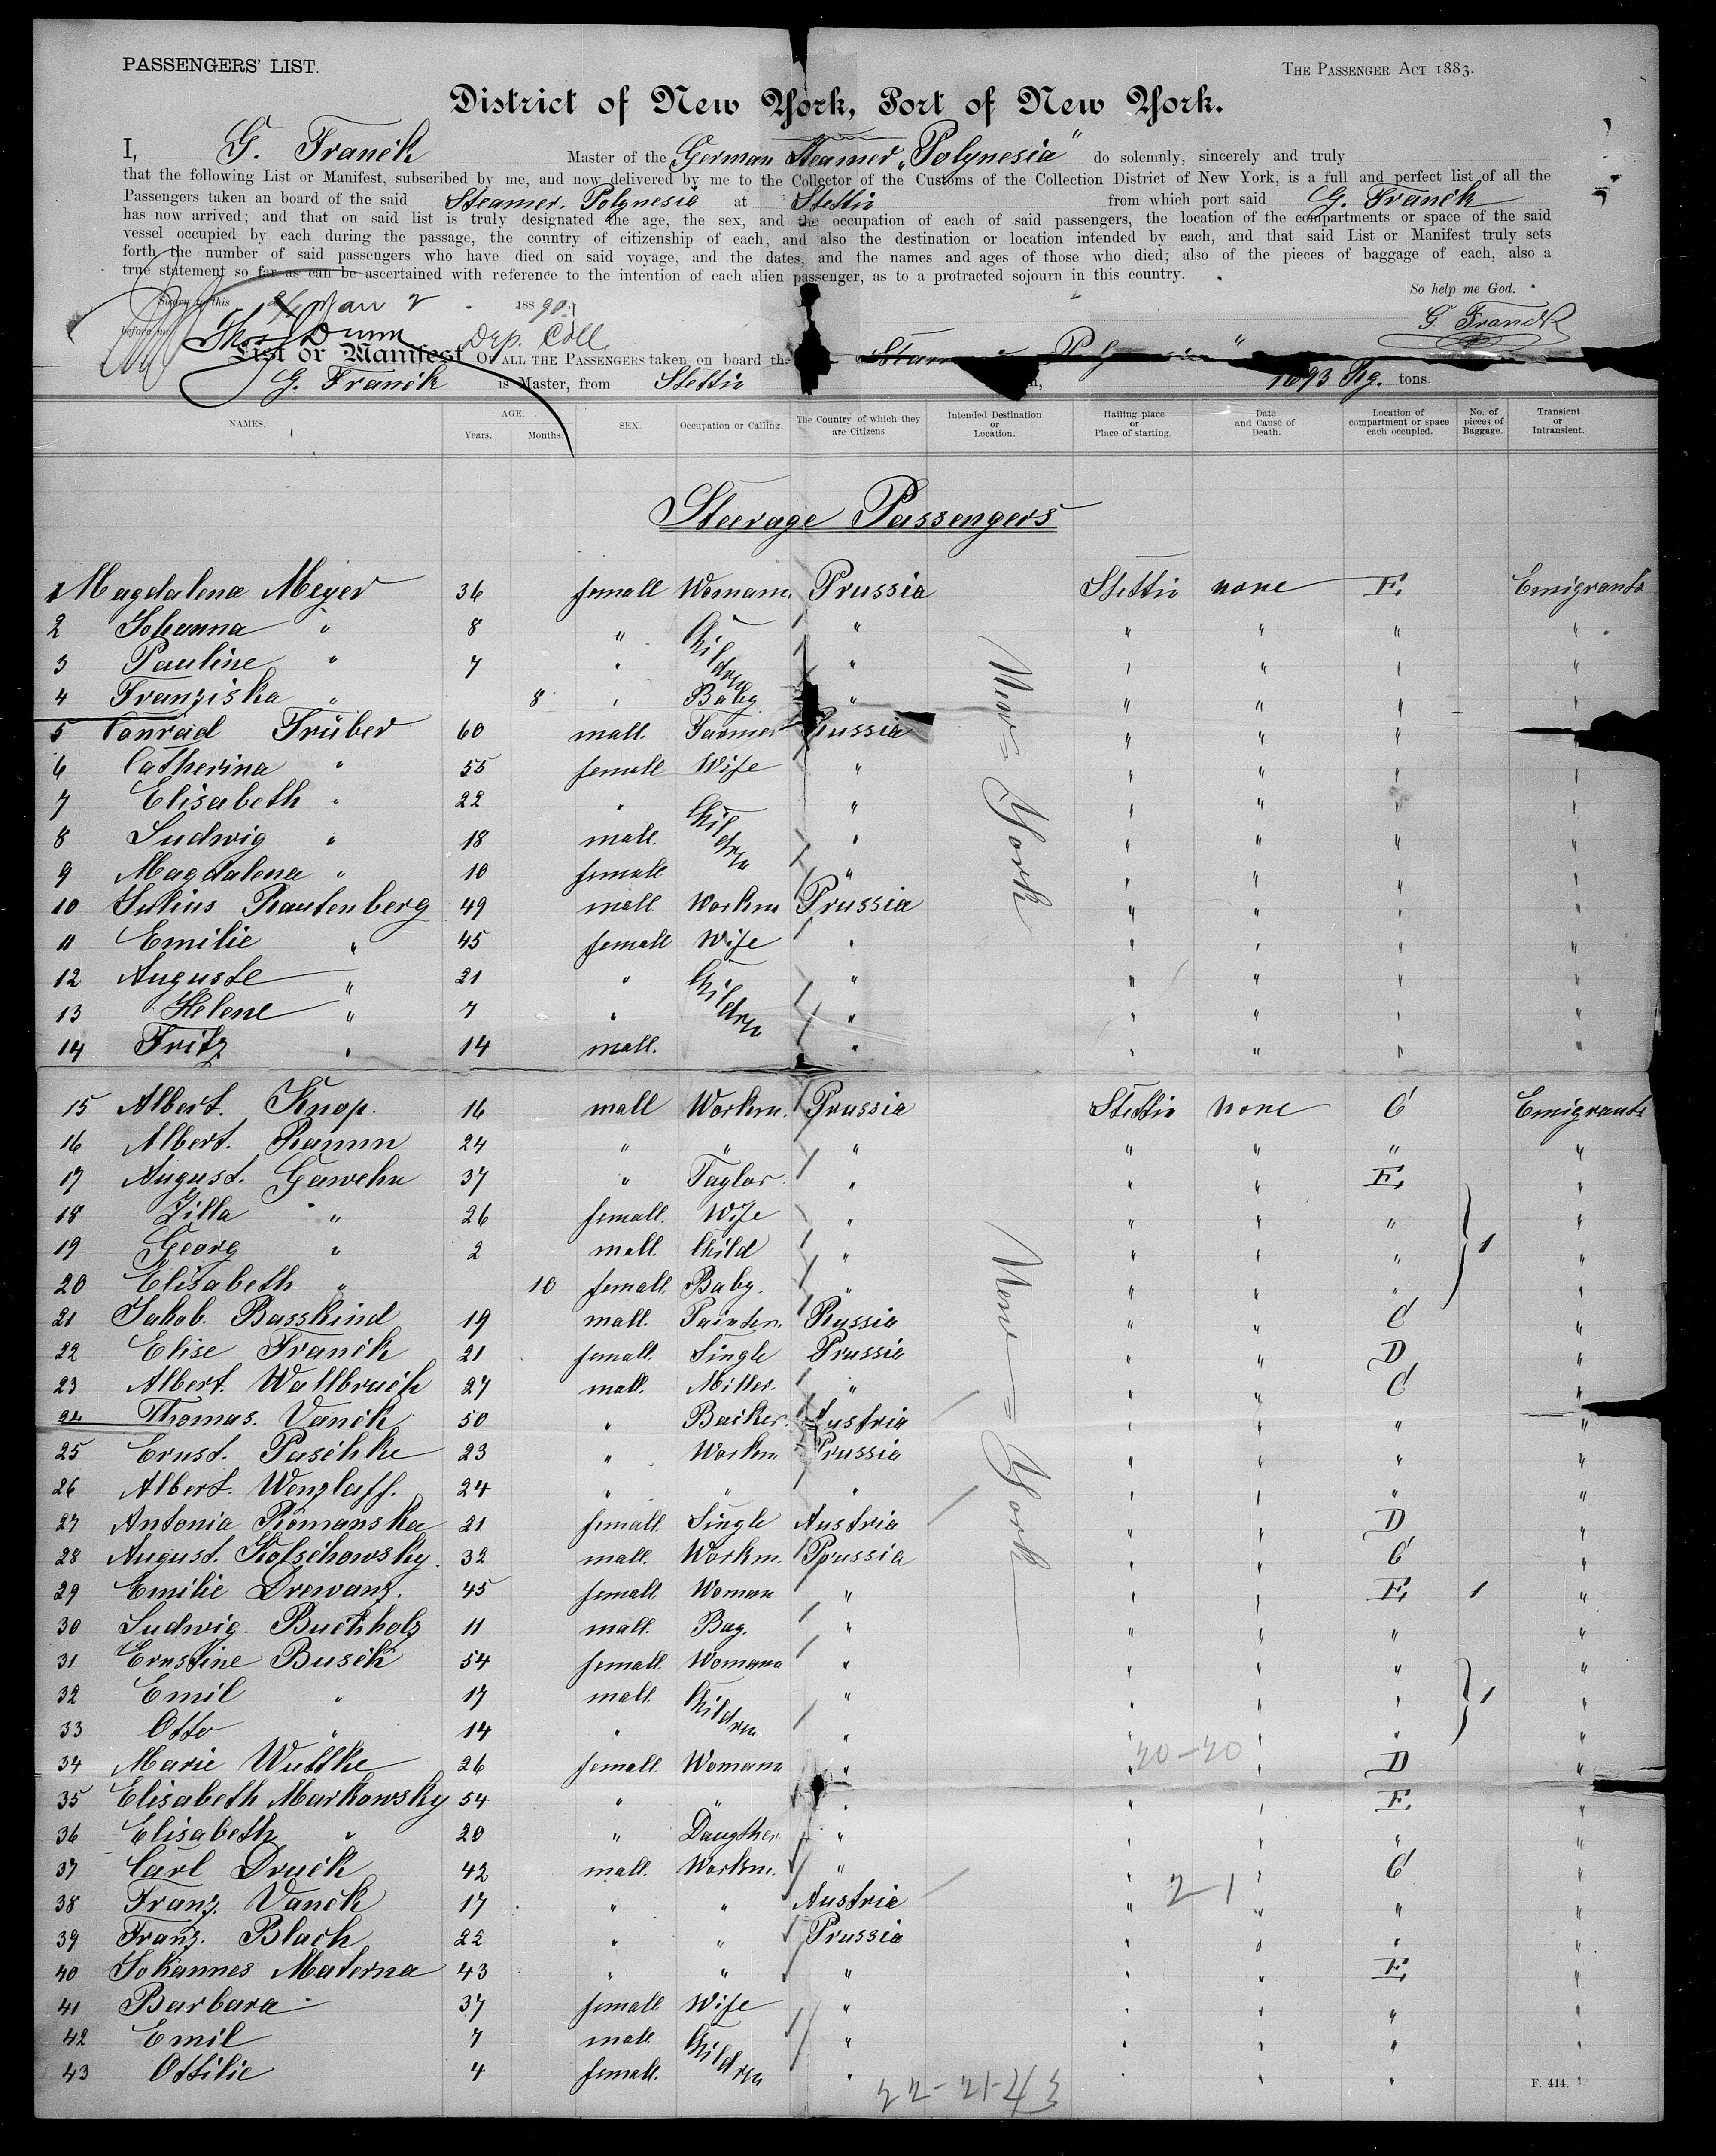 PASSENGERS' LIST.
THE PASSENGER ACT 1883.
District of New York, Port of New York.
I, G. Franck Master of the German Steamer „Polynesia" do solemnly, sincerely and truly
that the following List or Manifest, subscribed by me, and now delivered by me to the Collector of the Customs of the Collection District of New York, is a full and perfect list of all the
Passengers taken an board of the said Steamer. Polynesia at Stettin from which port said G. Franck
has now arrived; and that on said list is truly designated the age, the sex, and the occupation of each of said passengers, the location of the compartments or space of the said
vessel occupied by each during the passage, the country of citizenship of each, and also the destination or location intended by each, and that said List or Manifest truly sets
forth the number of said passengers who have died on said voyage, and the dates, and the names and ages of those who died; also of the pieces of baggage of each, also a
true statement so far as can be ascertained with reference to the intention of each alien passenger, as to a protracted sojourn in this country.
So help me God.
Sworn to this Jan 2 1890
before me Thos Dunn Dep. Coll. G. Franck
List or Manifest OF ALL THE PASSENGERS taken on board the Steamer Polynesia"
G. Franck is Master, from Stettin 1693 Rg. tons.
NAMES. AGE. Years. Months. SEX. Occupation or Calling. The Country of which they are Citizens Intended Destination or Location. Hailing place or Place of starting. Date and Cause of Death. Location of compartment or space each occupied. No. of pieces of Baggage. Transient or Intransient.
Steerage Passengers
1 Magdalena Meyer 36 femall Womann Prussia Stettin none E Emigrants
2 Johanna " 8 " Children " " " " "
3 Pauline " 7 " " " " " "
4 Franziska " 8 " Baby " " " " "
5 Conrad Früber 60 mall. Farmer Russia " " " "
6 Catherina " 55 femall Wife " " " " "
7 Elisabeth " 22 " Children " " " " "
8 Ludwig " 18 mall. " " " " "
9 Magdalena " 10 femall " " " " "
10 Julius Rautenberg 49 mall Workm Prussia " " " "
11 Emilie " 45 femall Wife " " " " "
12 Auguste " 21 " Children " " " " "
13 Helene " 7 " " " " " "
14 Fritz " 14 mall. " " " " "
New=York
15 Albert. Knop. 16 mall Workm. Prussia Stettin none C Emigrants
16 Albert. Ramm 24 " " " " " " "
17 August. Gawehn 37 " Taylor. " " " E "
18 Zilla " 26 femall. Wife " " " " "
19 Georg " 2 mall. Child " " " " 1 "
20 Elisabeth " 10 femall. Baby. " " " " "
21 Jakob. Basskind 19 mall. Painter. Russia " " C "
22 Elise Franck 21 femall. Single Prussia " " D "
23 Albert. Wallbruch 27 mall. Miller. " " " C "
24 Thomas. Vanck 50 " Backer. Austria " " " "
25 Ernst. Paschke 23 " Workm Prussia " " " "
26 Albert. Wenzlaff. 24 " " " " " " "
27 Antonia Romanska 21 femall. Single Austria " " D "
28 August. Kolschowsky. 32 mall. Workm. Prussia " " C "
29 Emilie Drewanz. 45 femall. Woman " " " E 1 "
30 Ludwig. Buchholz 11 mall. Boy. " " " " "
31 Ernstine Busch 54 femall. Womann " " " " "
32 Emil " 17 mall. Children " " " " 1 "
33 Otto " 14 " " " " " "
34 Marie Wuttke 26 femall. Womann " " " D "
35 Elisabeth Markowsky 54 " " " " " E "
36 Elisabeth " 20 " Daugther " " " " "
37 Carl Druck 42 mall. Workm. " " " C "
38 Franz. Vanck 17 " " Austria " " " "
39 Franz. Blach 22 " " Prussia " " " "
40 Johannes Materna 43 " " " " " E "
41 Barbara 37 femall. Wife " " " " "
42 Emil 7 mall. Children " " " " "
43 Ottilie 4 femall. " " " " "
New=York
20-20
2-1
22-21-43
F. 414.